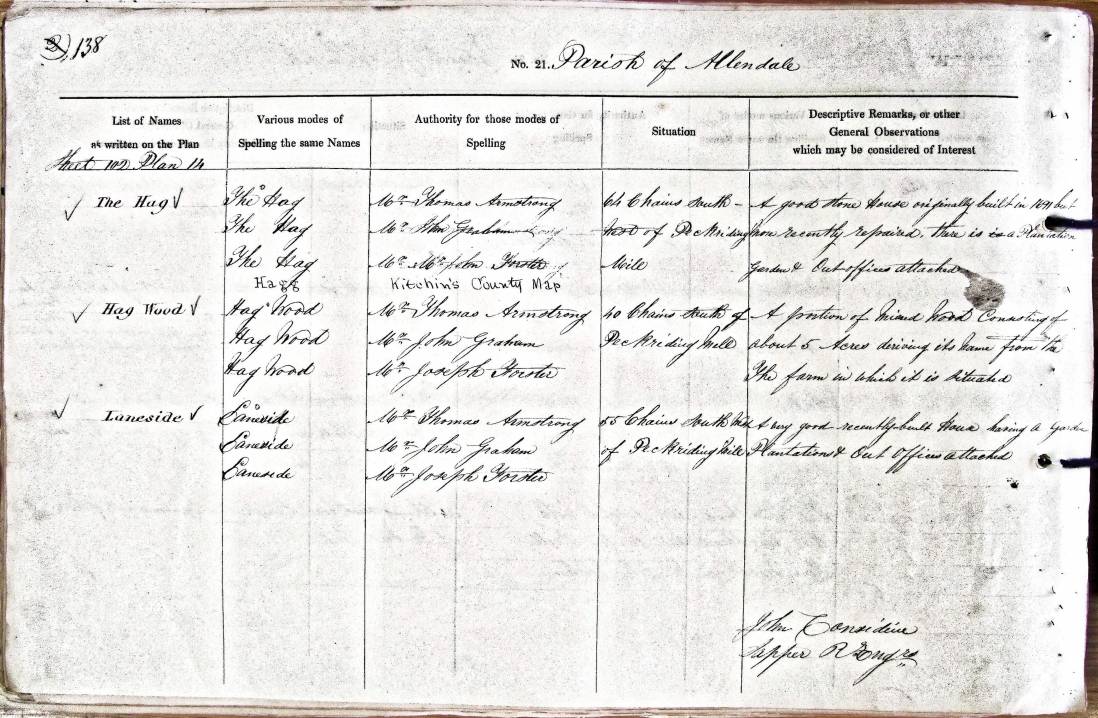 138
No. 21. Parish of Allendale
List of Names
as written on the Plan
Various modes of
Spelling the same Names
Authority for those modes of
Spelling
Situation
Descriptive Remarks, or other
General Observations
which may be considered of Interest
Sheet 102 Plan 14
The Hag
The Hag
Mr Thomas Armstrong
64 Chains South -
A good Stone House originally built in 1691 but
The Hag
Mr John Graham
West of Peckriding
now recently repaired, there is a Plantation
The Hag
Mr John Forster
Mile
Garden & Out offices attached
Hagg
Kitchin's County Map
Hag Wood
Hag Wood
Mr Thomas Armstrong
40 Chains South of
A portion of Mixed Wood Consisting of
Hag Wood
Mr John Graham
Peckriding Mill
about 5 Acres deriving its Name from the
Hag Wood
Mr Joseph Forster
The farm in which it is Situated
Laneside
Laneside
Mr Thomas Armstrong
55 Chains South West
A very good recently built House having a Garden
Laneside
Mr John Graham
of Peckriding Mile
Plantations & Out Offices attached
Laneside
Mr Joseph Forster
John Considine
Sapper R Engrs